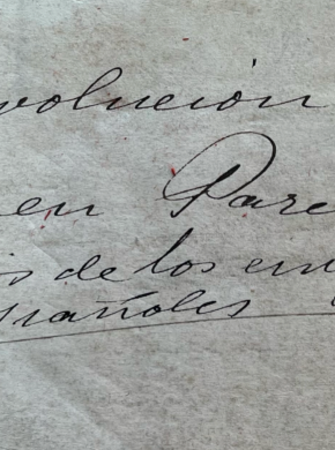 volución
en Pare
s de los em
spañoles